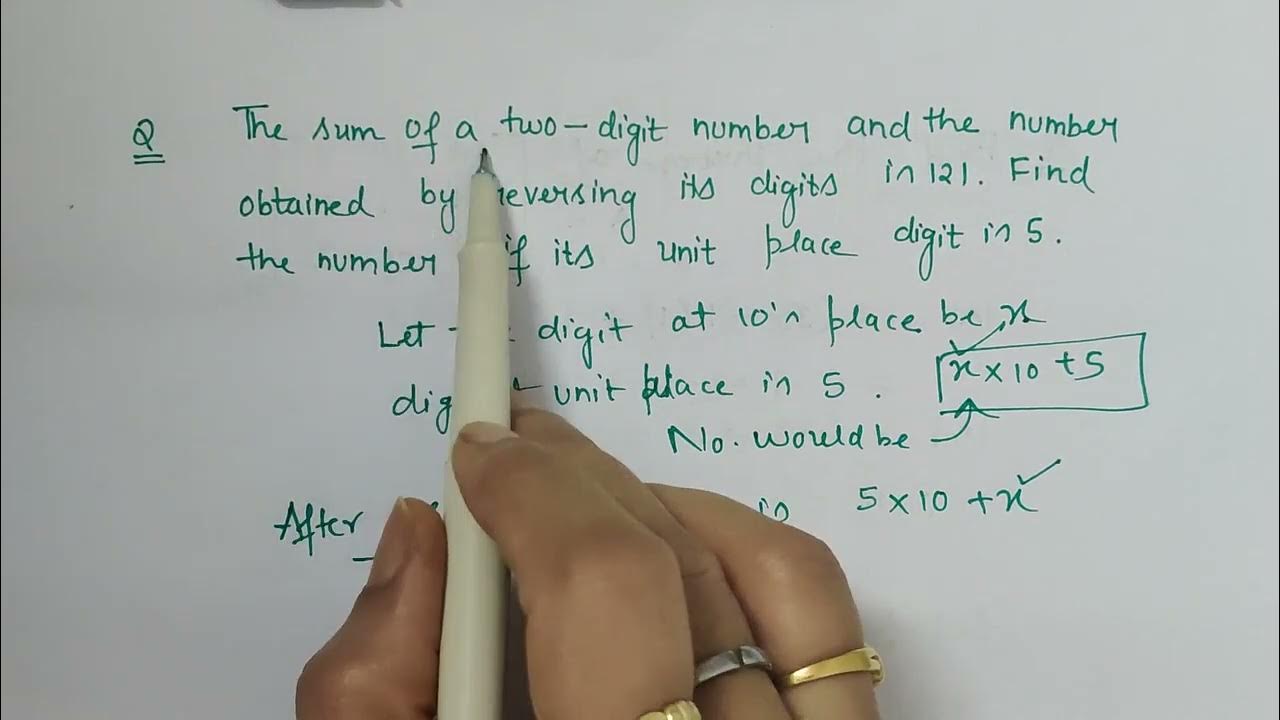 Q The sum of a two-digit number and the number
obtained by reversing its digits in 121. Find
the number if its unit place digit in 5.
Let digit at 10's place be x
unit place in 5. x × 10 + 5
No. would be
After 5 × 10 + x